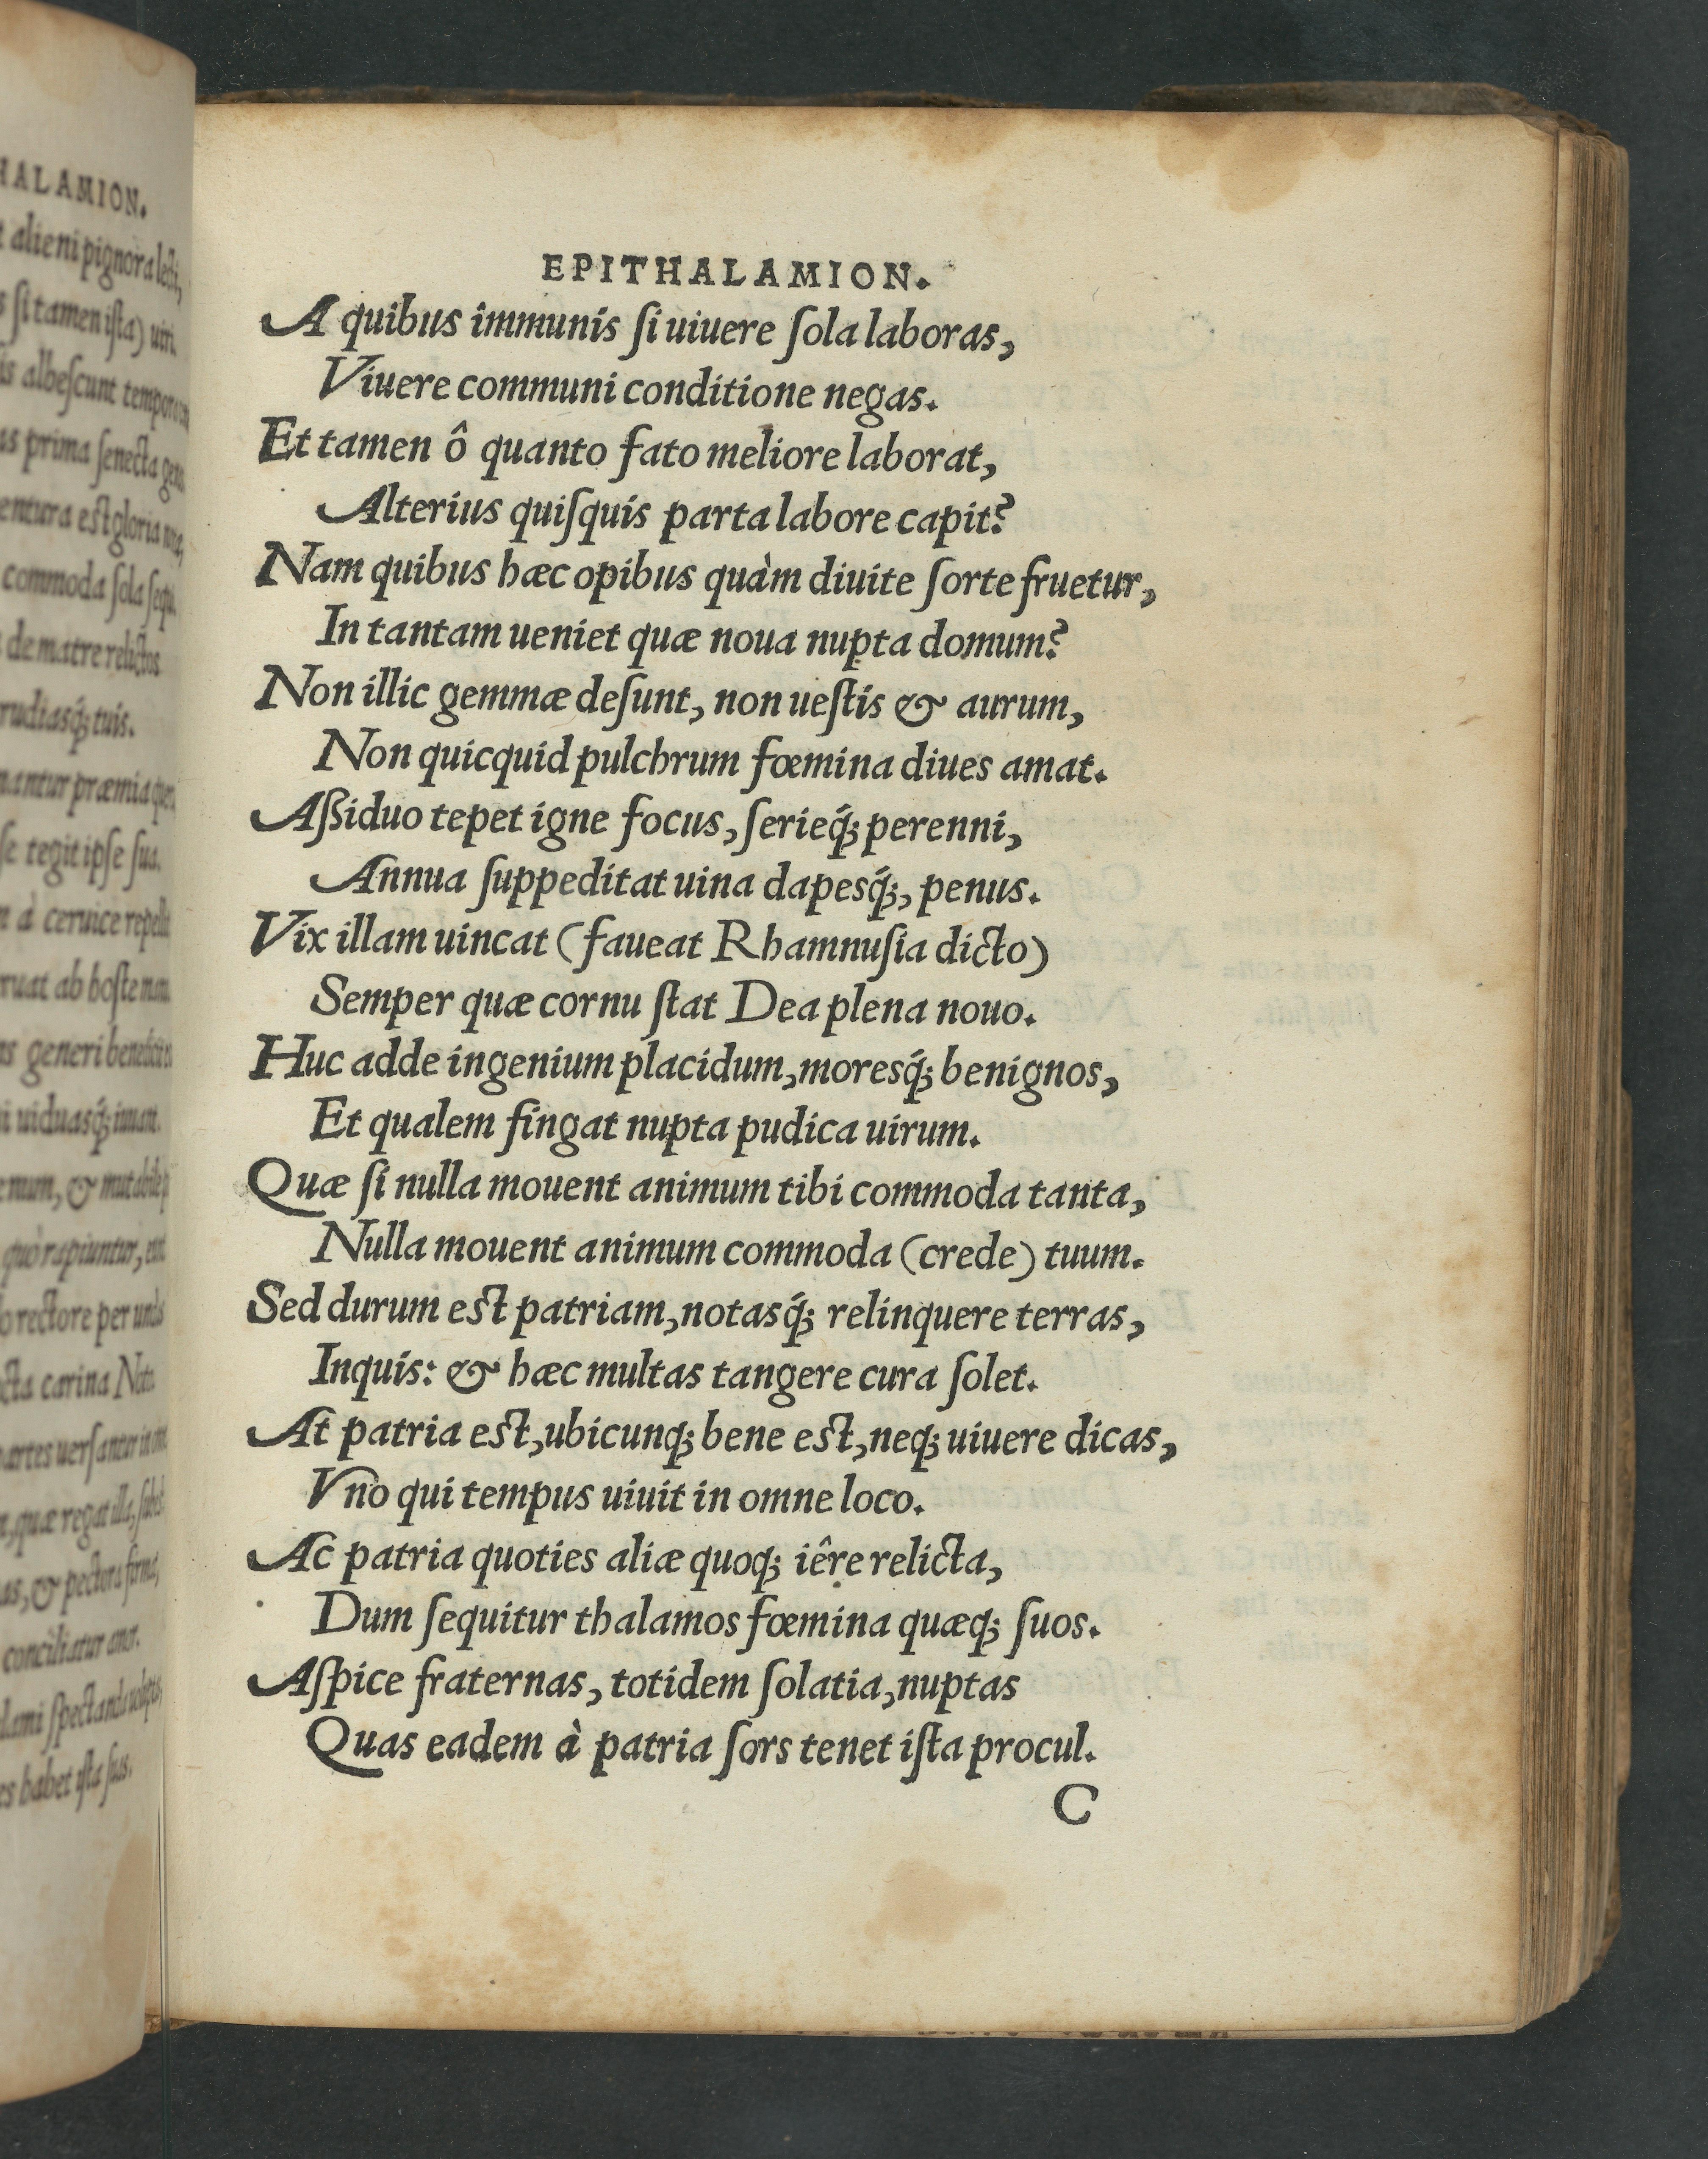 HALAMION.
alieni pignora lecti,
ſi tamen iſta) uiri.
albeſcunt tempora
prima ſenecta
eſt gloria
commoda ſola ſequi.
de matre relictos
tuis.
præmia
tegit ipſe ſua.
à ceruice
ab hoſte
generi
uiduasq́;
& mutabile
quò rapiuntur,
rectore per undas
carina Noto.
uerſantur in
quæ regat illa,
& pectora firmæ,
conciliatur amor.
ſpectanda uoluptas
habet iſta ſuas.
EPITHALAMION.
A quibus immunis ſi uiuere ſola laboras,
Viuere communi conditione negas.
Et tamen ô quanto fato meliore laborat,
Alterius quiſquis parta labore capit?
Nam quibus hæc opibus quàm diuite ſorte fruetur,
In tantam ueniet quæ noua nupta domum?
Non illic gemmæ deſunt, non ueſtis & aurum,
Non quicquid pulchrum fœmina diues amat.
Aßiduo tepet igne focus, ſerieq́; perenni,
Annua ſuppeditat uina dapesq́;, penus.
Vix illam uincat (faueat Rhamnuſia dicto)
Semper quæ cornu ſtat Dea plena nouo.
Huc adde ingenium placidum, moresq́; benignos,
Et qualem fingat nupta pudica uirum.
Quæ ſi nulla mouent animum tibi commoda tanta,
Nulla mouent animum commoda (crede) tuum.
Sed durum est patriam, notasq́; relinquere terras,
Inquis: & hæc multas tangere cura ſolet.
At patria est, ubicunq; bene est, neq; uiuere dicas,
Vno qui tempus uiuit in omne loco.
Ac patria quoties aliæ quoq; iêre relicta,
Dum ſequitur thalamos fœmina quæq; ſuos.
Aſpice fraternas, totidem ſolatia, nuptas
Quas eadem à patria ſors tenet iſta procul.
C